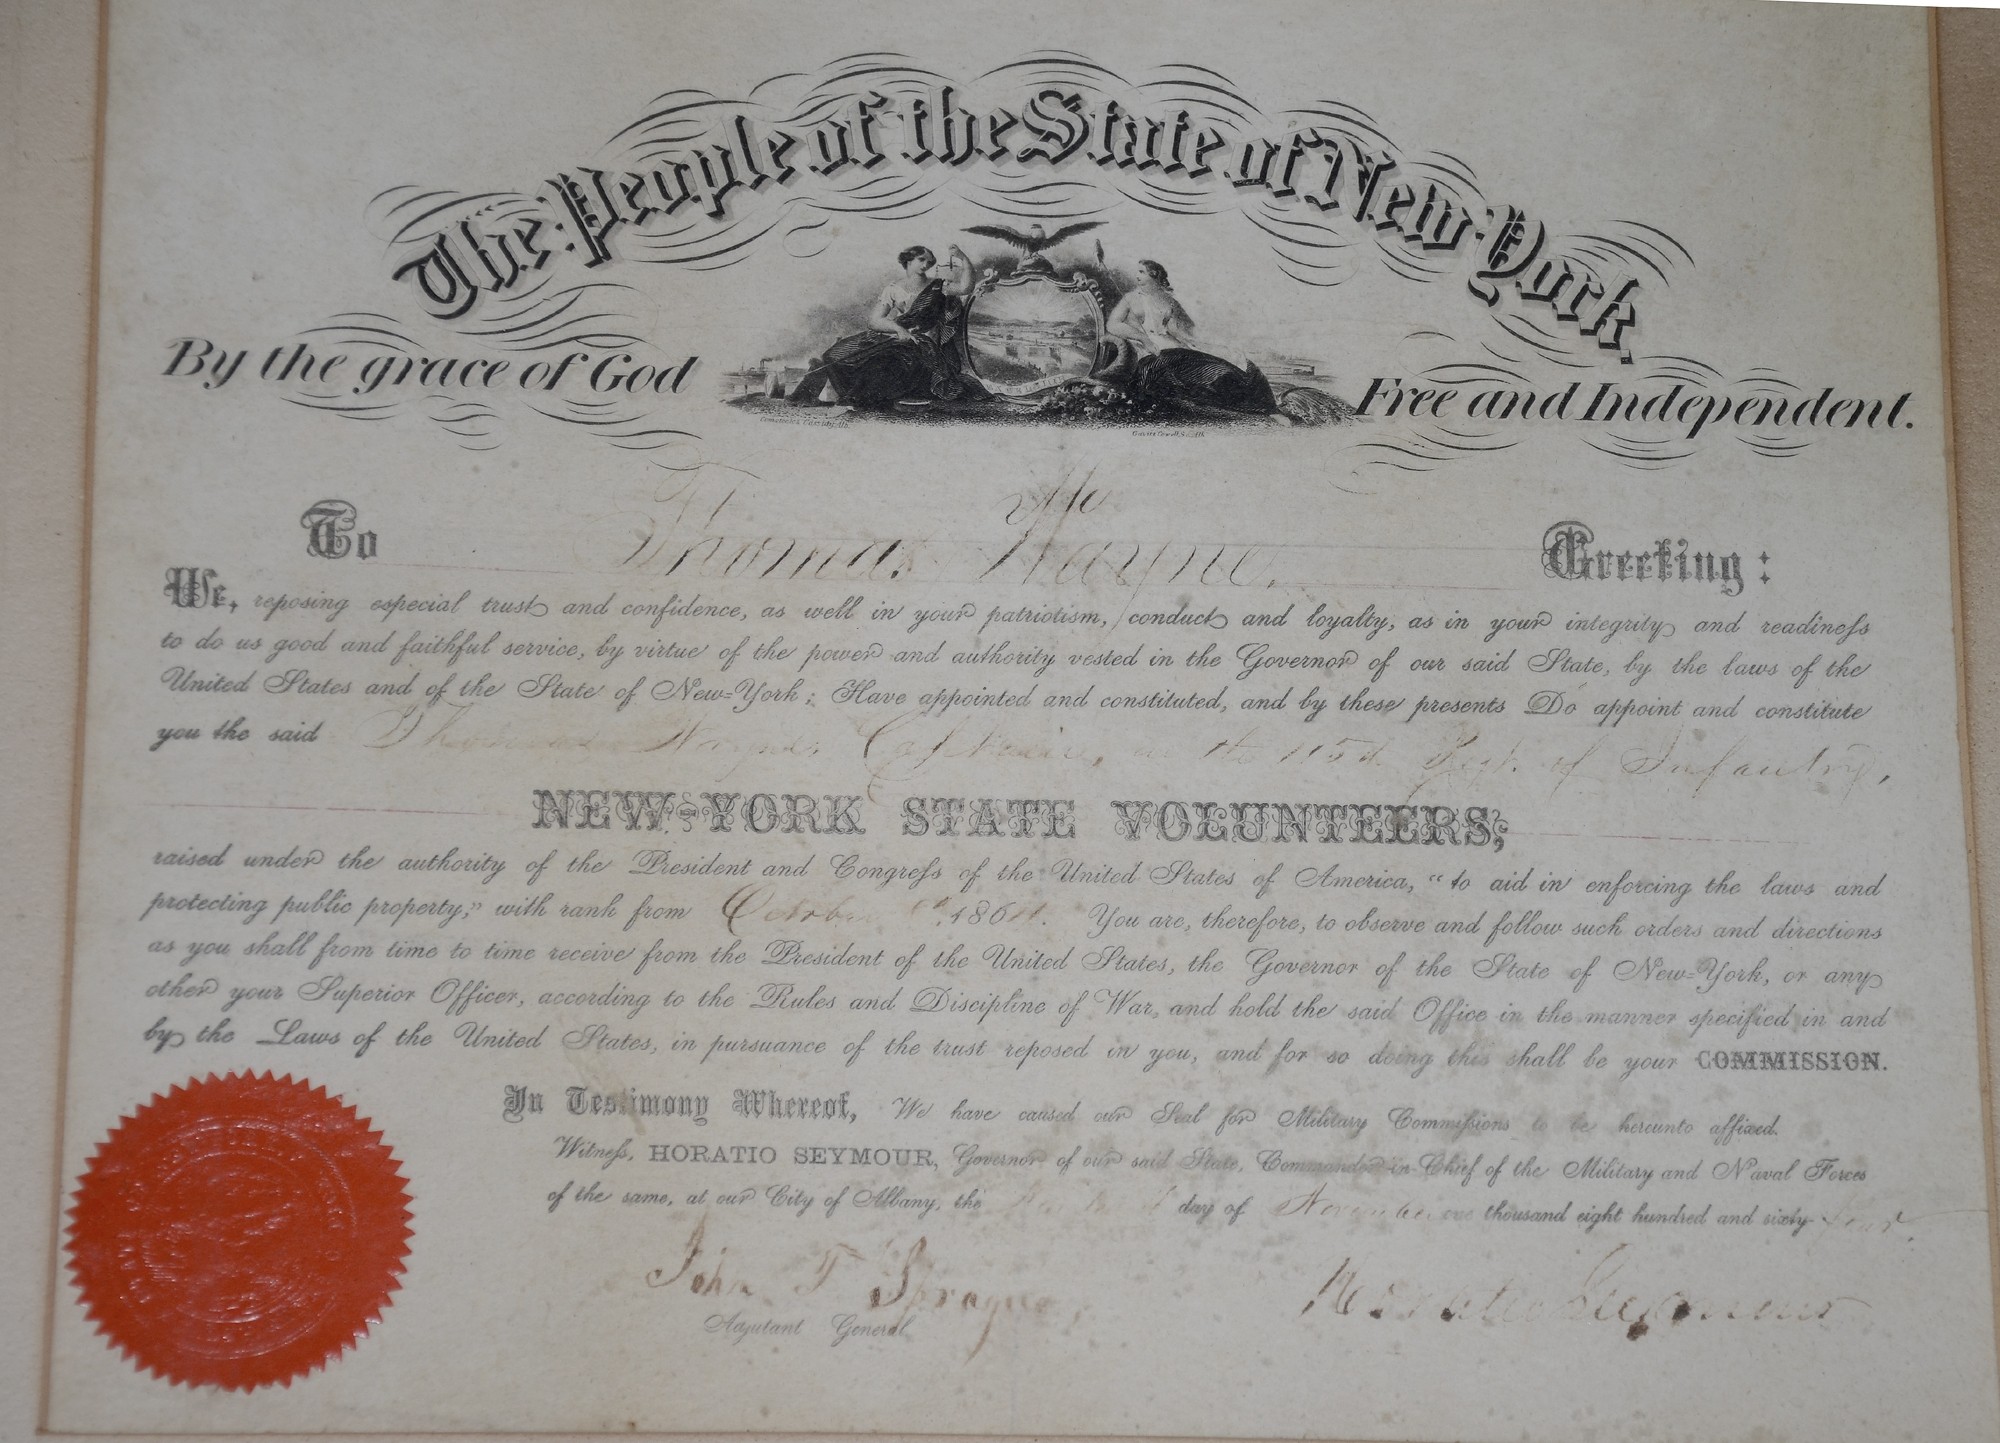 The People of the State of New York
By the grace of God
Free and Independent.
To Thomas Wayne. Greeting:
We, reposing especial trust and confidence, as well in your patriotism, conduct and loyalty, as in your integrity and readiness
to do us good and faithful service, by virtue of the power and authority vested in the Governor of our said State, by the laws of the
United States and of the State of New=York; Have appointed and constituted, and by these presents Do appoint and constitute
you the said Thomas Wayne, Captain, in the 115th Regt. of Infantry,
NEW-YORK STATE VOLUNTEERS;
raised under the authority of the President and Congress of the United States of America, "to aid in enforcing the laws and
protecting public property," with rank from October 1864. You are, therefore, to observe and follow such orders and directions
as you shall from time to time receive from the President of the United States, the Governor of the State of New=York, or any
other your Superior Officer, according to the Rules and Discipline of War, and hold the said Office in the manner specified in and
by the Laws of the United States, in pursuance of the trust reposed in you, and for so doing this shall be your COMMISSION.
In Testimony Whereof, We have caused our Seal for Military Commissions to be hereunto affixed.
Witness, HORATIO SEYMOUR, Governor of our said State, Commander-in-Chief of the Military and Naval Forces
of the same, at our City of Albany, the day of November one thousand eight hundred and sixty-four.
John T Sprague,
Adjutant General
Horatio Seymour